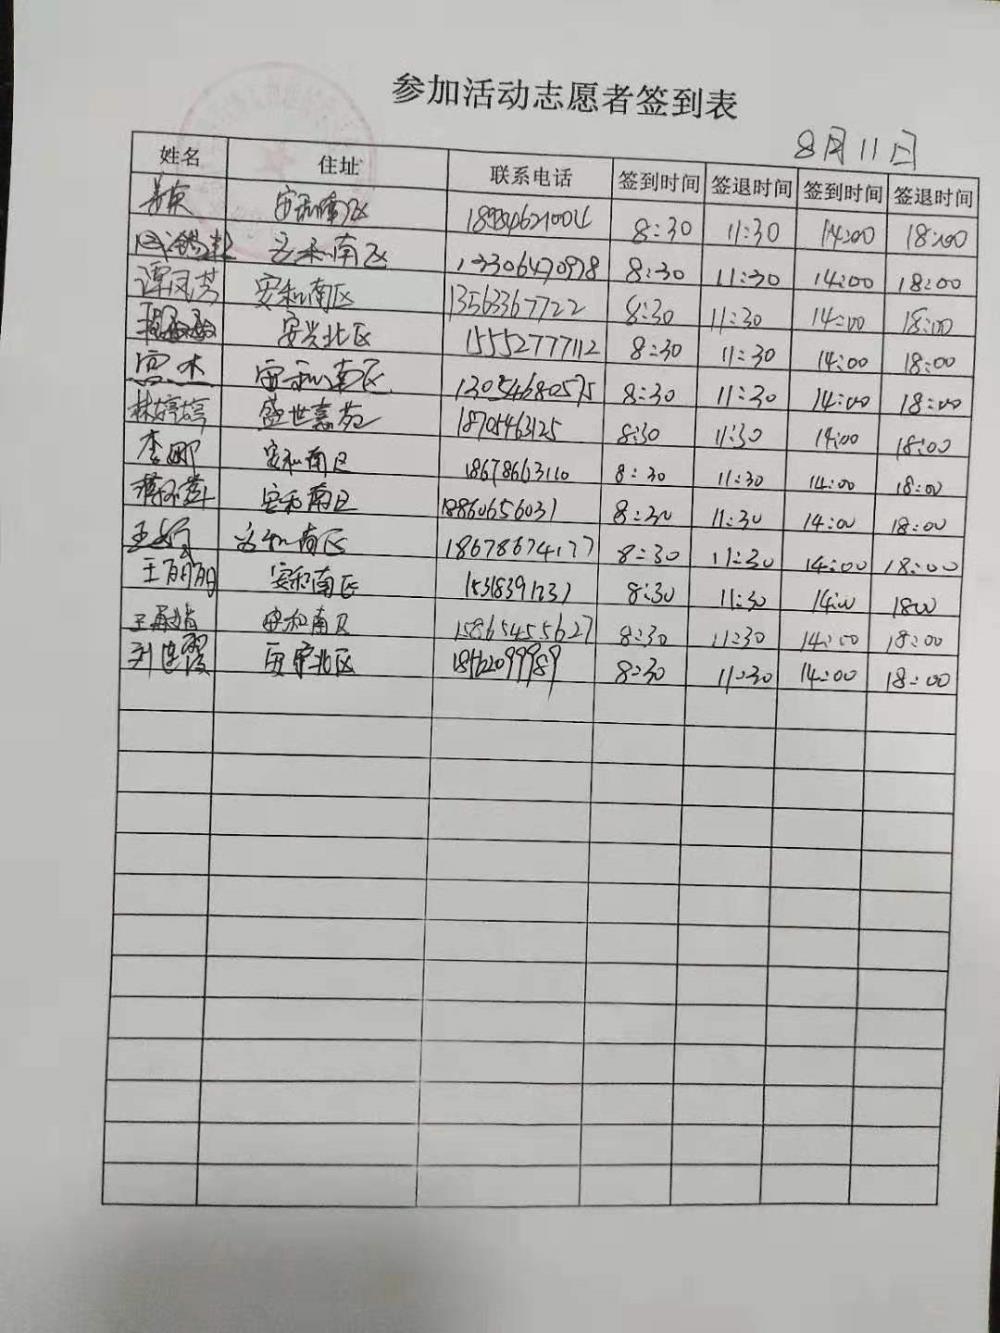 参加活动志愿者签到表
8月11日
姓名 住址 联系电话 签到时间 签退时间 签到时间 签退时间
安和南区 8:30 11:30 14:00 18:00
安和南区 13306470978 8:30 11:30 14:00 18:00
谭凤芳 安和南区 13563367722 8:30 11:30 14:00 18:00
安兴北区 15552777112 8:30 11:30 14:00 18:00
安和南区 13054680575 8:30 11:30 14:00 18:00
林婷婷 盛世嘉苑 18705463125 8:30 11:30 14:00 18:00
李娜 安和南区 18678663110 8:30 11:30 14:00 18:00
安和南区 18860656031 8:30 11:30 14:00 18:00
安和南区 18678674177 8:30 11:30 14:00 18:00
王丽丽 安和南区 15318391231 8:30 11:30 14:00 1800
安和南区 15865455627 8:30 11:30 14:00 18:00
安宁北区 8:30 11:30 14:00 18:00